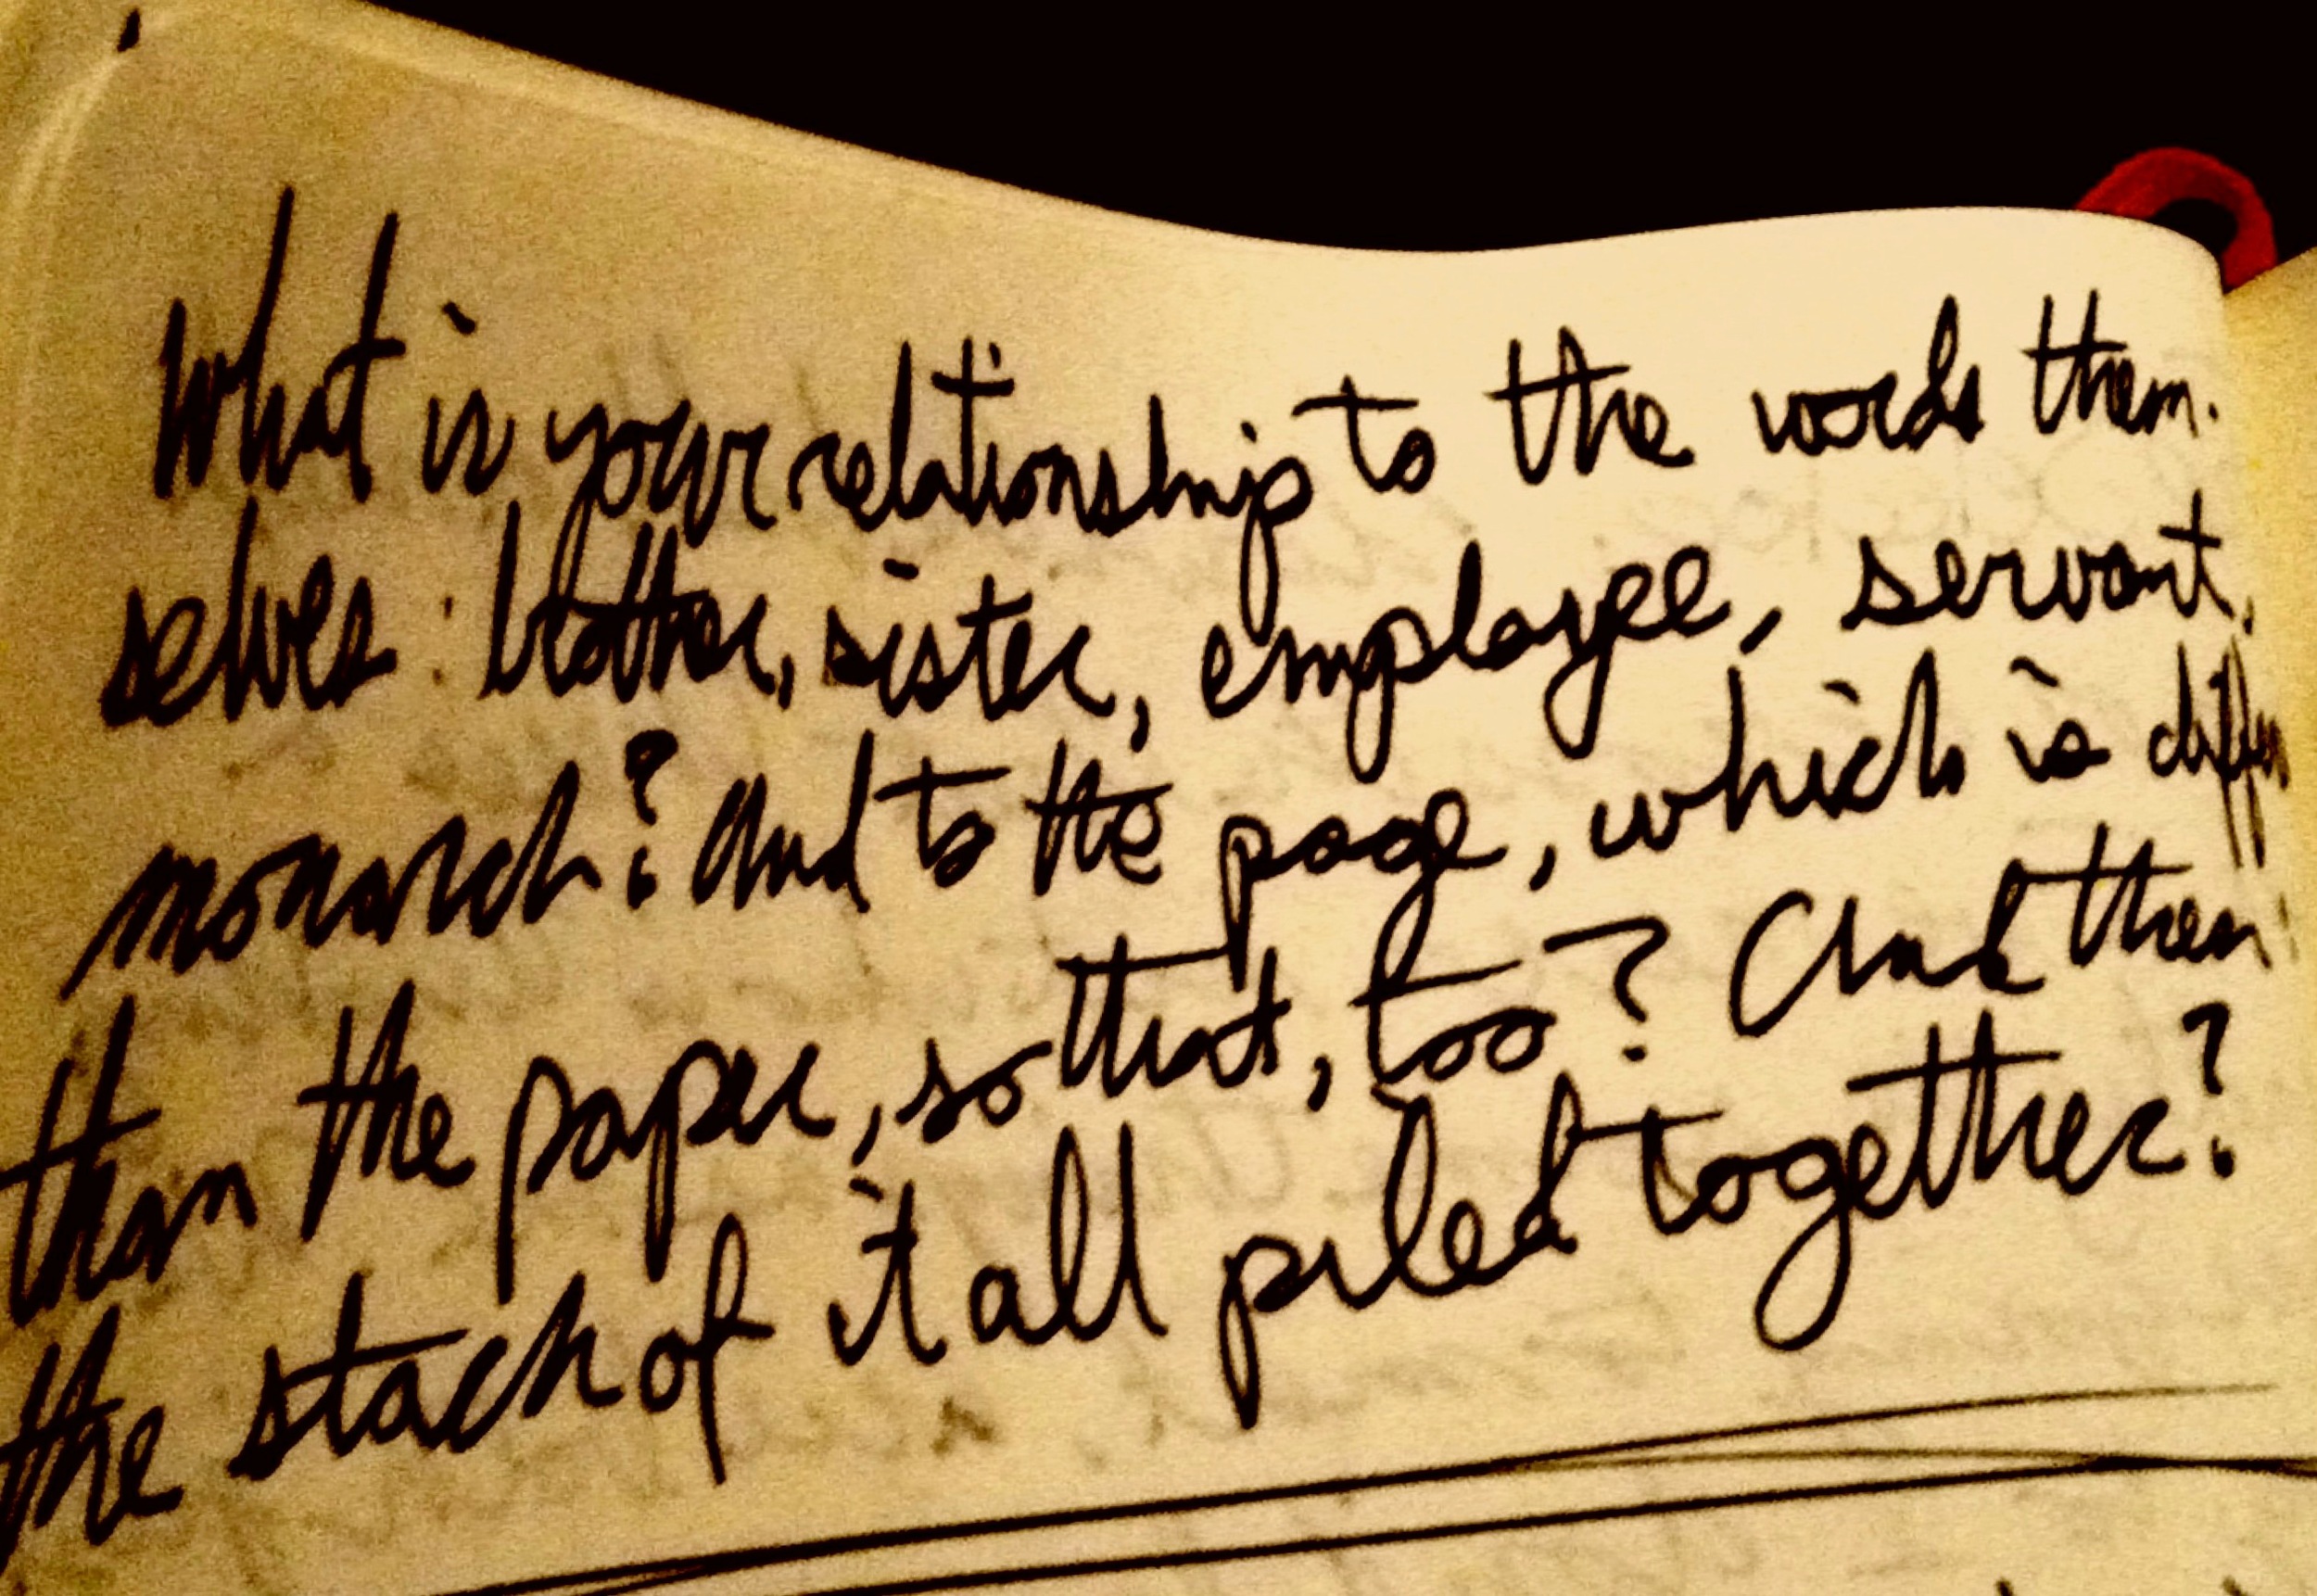 What is your relationship to the words them-
selves: brother, sister, employee, servant,
monarch? And to the page, which is differ
than the paper, so that, too? And then
the stack of it all piled together?